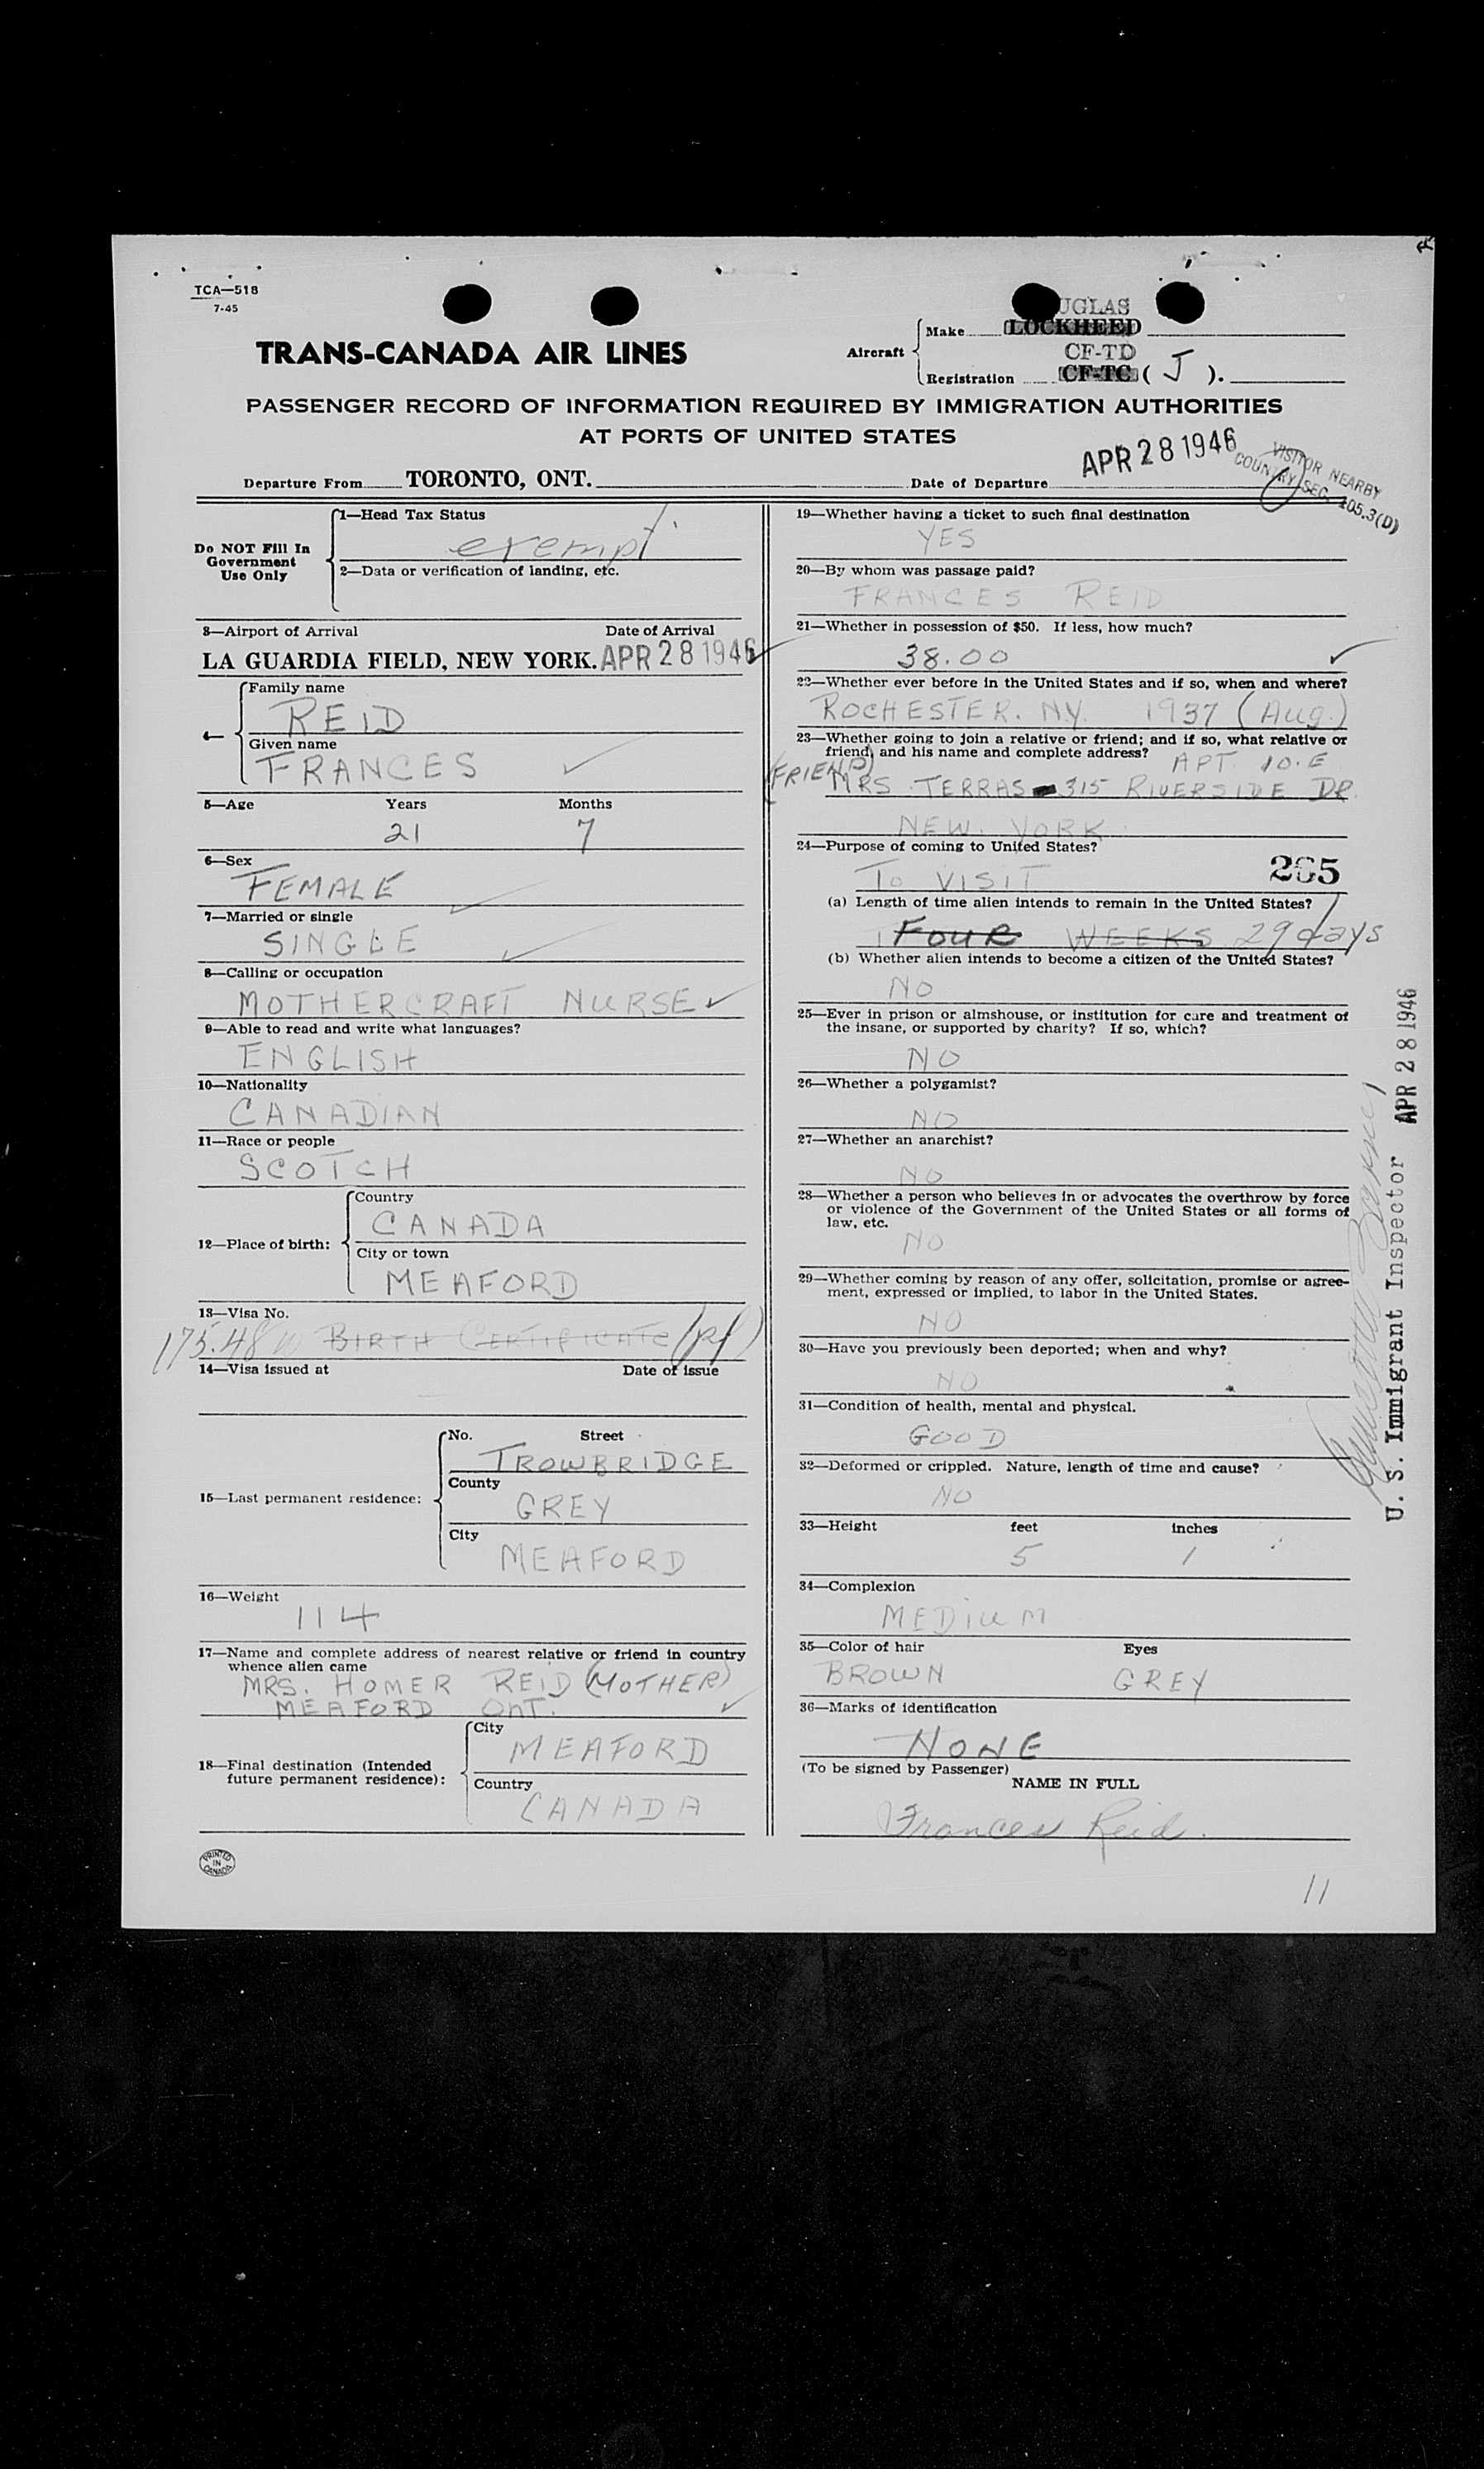 TCA—518
7-45
UGLAS
Aircraft
Make LOCKHEED
CF-TD
Registration CF-TC ( J ).
TRANS-CANADA AIR LINES
PASSENGER RECORD OF INFORMATION REQUIRED BY IMMIGRATION AUTHORITIES
AT PORTS OF UNITED STATES
Departure From TORONTO, ONT.
Date of Departure APR 28 1946
VISITOR NEARBY
COUNTRY SEC. 105.3(D)
Do NOT Fill In
Government
Use Only
1—Head Tax Status
exempt
2—Data or verification of landing, etc.
3—Airport of Arrival Date of Arrival
LA GUARDIA FIELD, NEW YORK. APR 28 1946
4—
Family name
REID
Given name
FRANCES
5—Age Years Months
21 7
6—Sex
FEMALE
7—Married or single
SINGLE
8—Calling or occupation
MOTHERCRAFT NURSE
9—Able to read and write what languages?
ENGLISH
10—Nationality
CANADIAN
11—Race or people
SCOTCH
12—Place of birth:
Country
CANADA
City or town
MEAFORD
13—Visa No.
175.48 BIRTH CERTIFICATE
14—Visa issued at Date of issue
15—Last permanent residence:
No. Street
TROWBRIDGE
County
GREY
City
MEAFORD
16—Weight
114
17—Name and complete address of nearest relative or friend in country
whence alien came
MRS. HOMER REID (MOTHER)
MEAFORD ONT.
18—Final destination (Intended
future permanent residence):
City
MEAFORD
Country
CANADA
PRINTED
IN
CANADA
19—Whether having a ticket to such final destination
YES
20—By whom was passage paid?
FRANCES REID
21—Whether in possession of $50. If less, how much?
38.00
22—Whether ever before in the United States and if so, when and where?
ROCHESTER. N.Y. 1937 (Aug.)
23—Whether going to join a relative or friend; and if so, what relative or
friend, and his name and complete address?
APT. 10.E
(FRIEND)
MRS. TERRAS 315 RIVERSIDE DR.
NEW YORK.
24—Purpose of coming to United States?
TO VISIT
265
(a) Length of time alien intends to remain in the United States?
FOUR WEEKS 29 days
(b) Whether alien intends to become a citizen of the United States?
NO
25—Ever in prison or almshouse, or institution for care and treatment of
the insane, or supported by charity? If so, which?
NO
26—Whether a polygamist?
NO
27—Whether an anarchist?
NO
28—Whether a person who believes in or advocates the overthrow by force
or violence of the Government of the United States or all forms of
law, etc.
NO
29—Whether coming by reason of any offer, solicitation, promise or agree-
ment, expressed or implied, to labor in the United States.
NO
30—Have you previously been deported; when and why?
NO
31—Condition of health, mental and physical.
GOOD
32—Deformed or crippled. Nature, length of time and cause?
NO
33—Height feet inches
5 1
34—Complexion
MEDIUM
35—Color of hair Eyes
BROWN GREY
36—Marks of identification
NONE
(To be signed by Passenger)
NAME IN FULL
Frances Reid.
11
U. S. Immigrant Inspector APR 28 1946